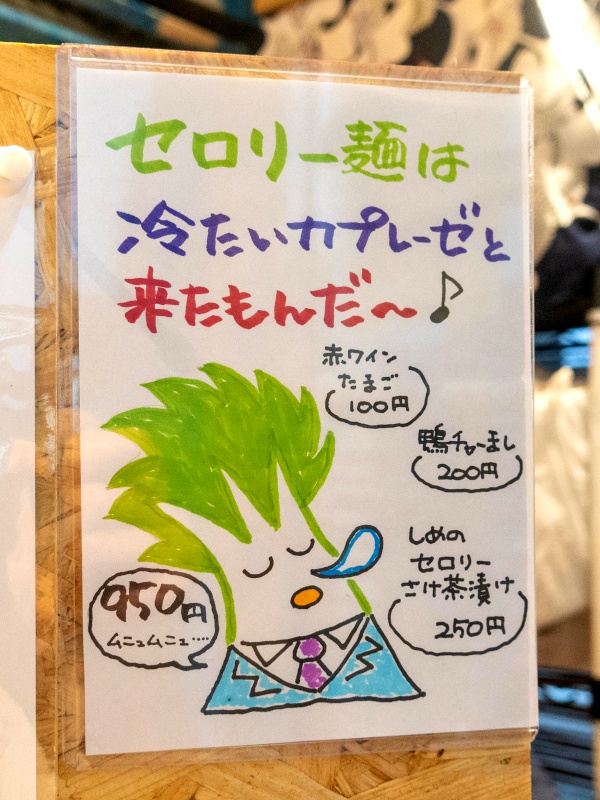 セロリー麺は
冷たいカプレーゼと
来たもんだ〜♪
赤ワイン
たまご
100円
鴨チャーまし
200円
しめの
セロリー
さけ茶漬け
250円
950円
ムニュムニュ‥‥